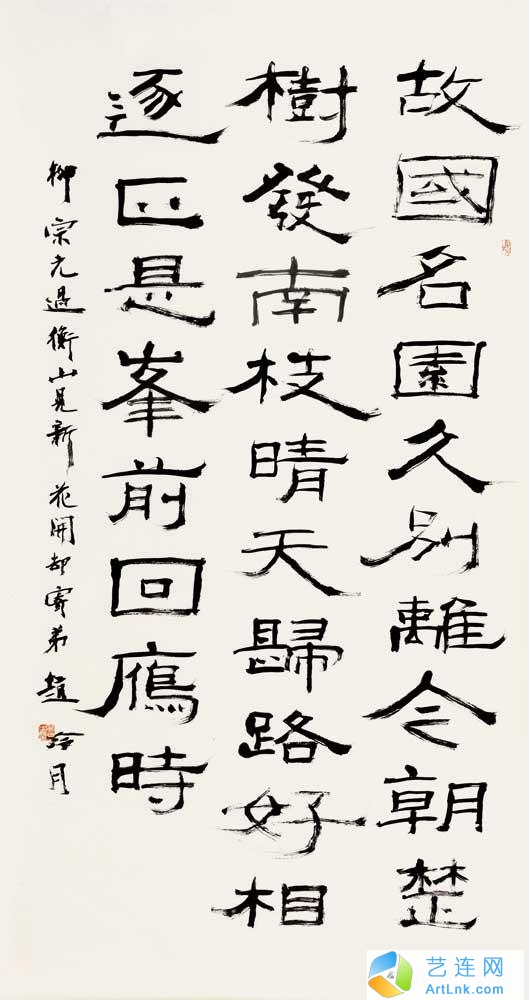 故國名園久別離今朝楚
樹發南枝晴天歸路好相
逐正是峯前回鴈時
柳宗元過衡山見新花開却寄弟 趙冷月
艺连网
ArtLnk.com